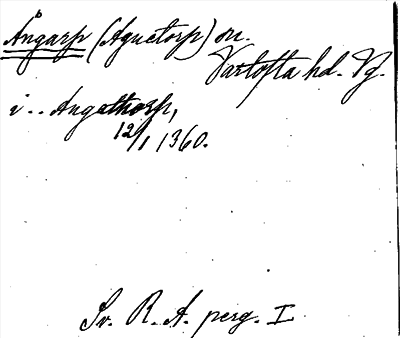 Ångarp (Agnetorp) sn.
Vartofta hd. Vg.
i .. Angathorp,
12/1 1360.
Sv. R. A. perg. I